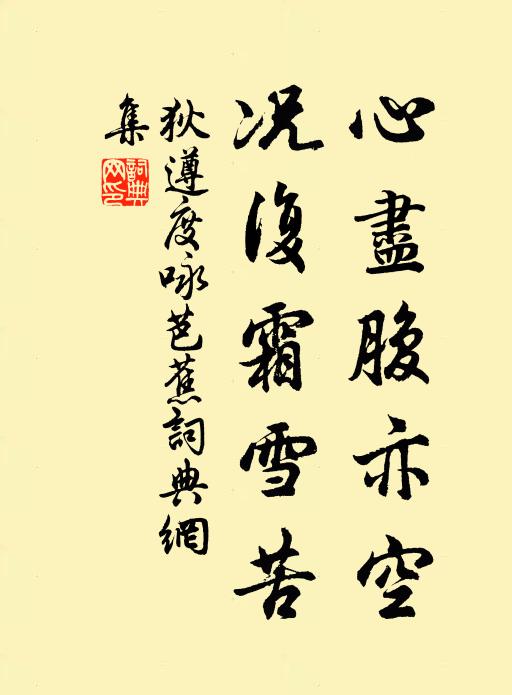 心盡腹亦空
况復霜雪苦
狄遵度咏芭蕉詞典網
集
詞典
网印